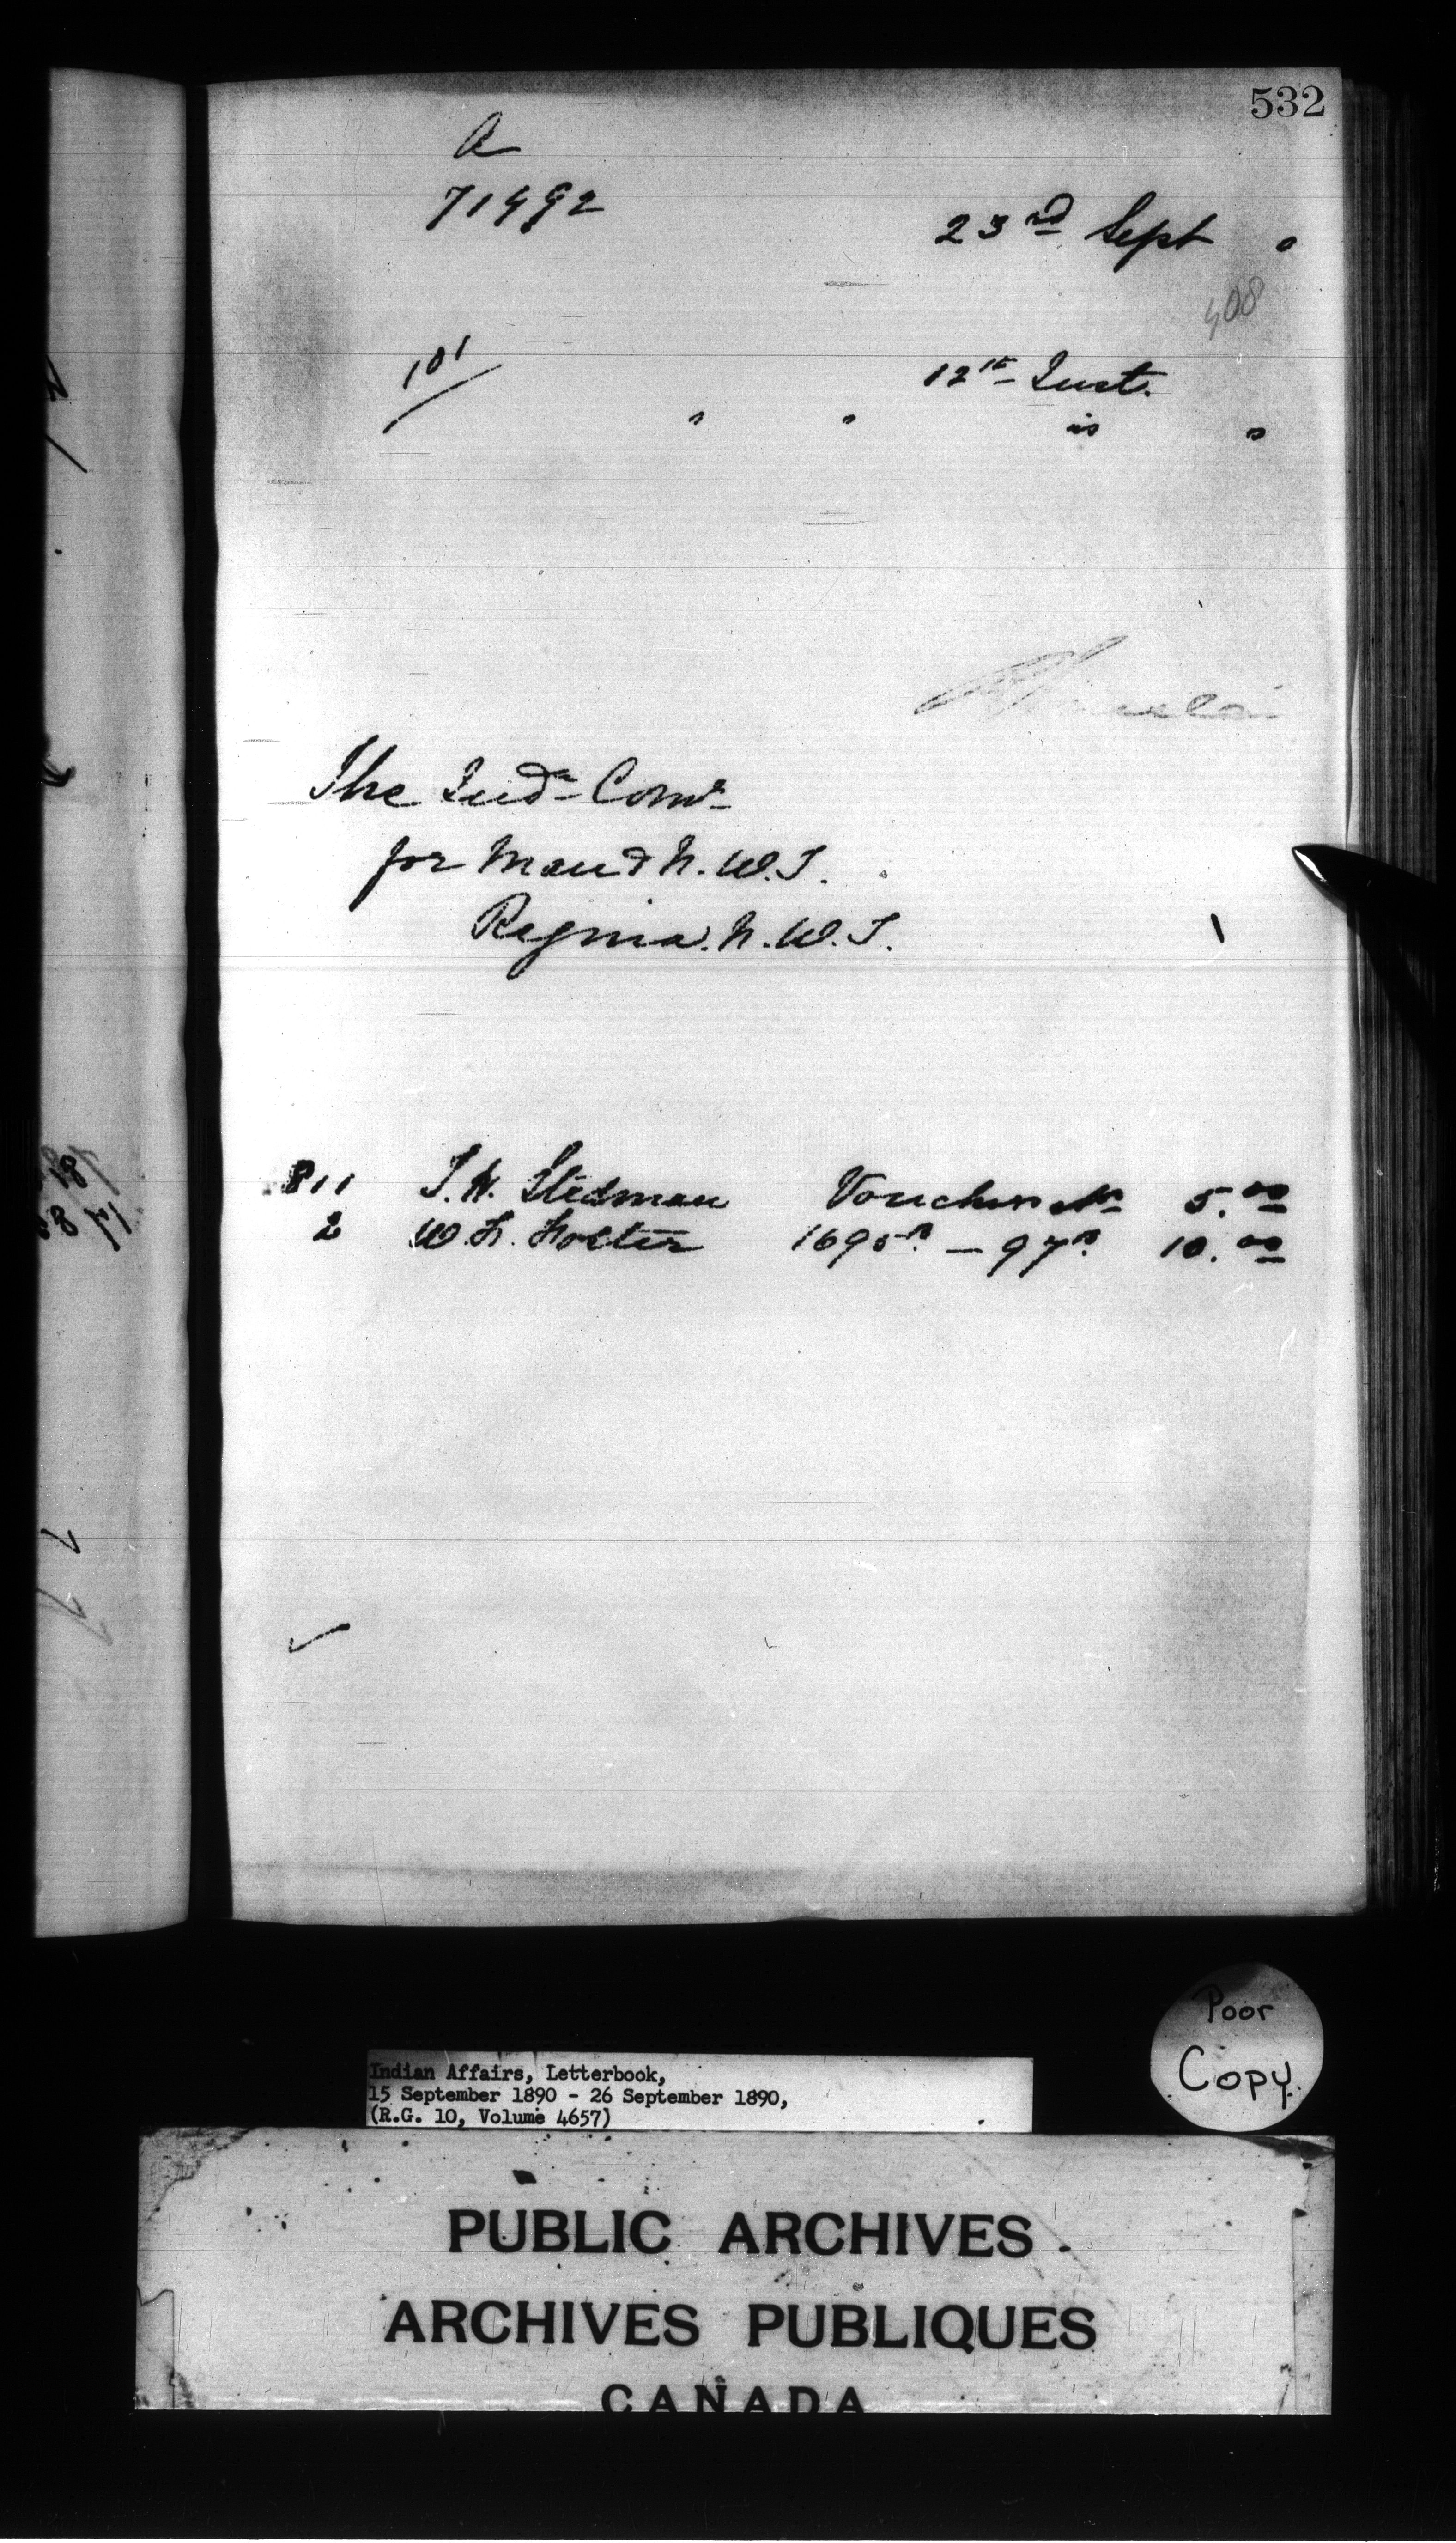 532
A
71492
23rd Sept 0
408
101
12th Inst.
" " is 0
The Indn Comr
for Man & N.W.T.
Regina. N.W.T.
811 T.W. Stedman Voucher No 5.00
2 W.L. Holter 1695 — 97 10.00
Poor
Copy
Indian Affairs, Letterbook,
15 September 1890 - 26 September 1890,
(R.G. 10, Volume 4657)
PUBLIC ARCHIVES
ARCHIVES PUBLIQUES
CANADA